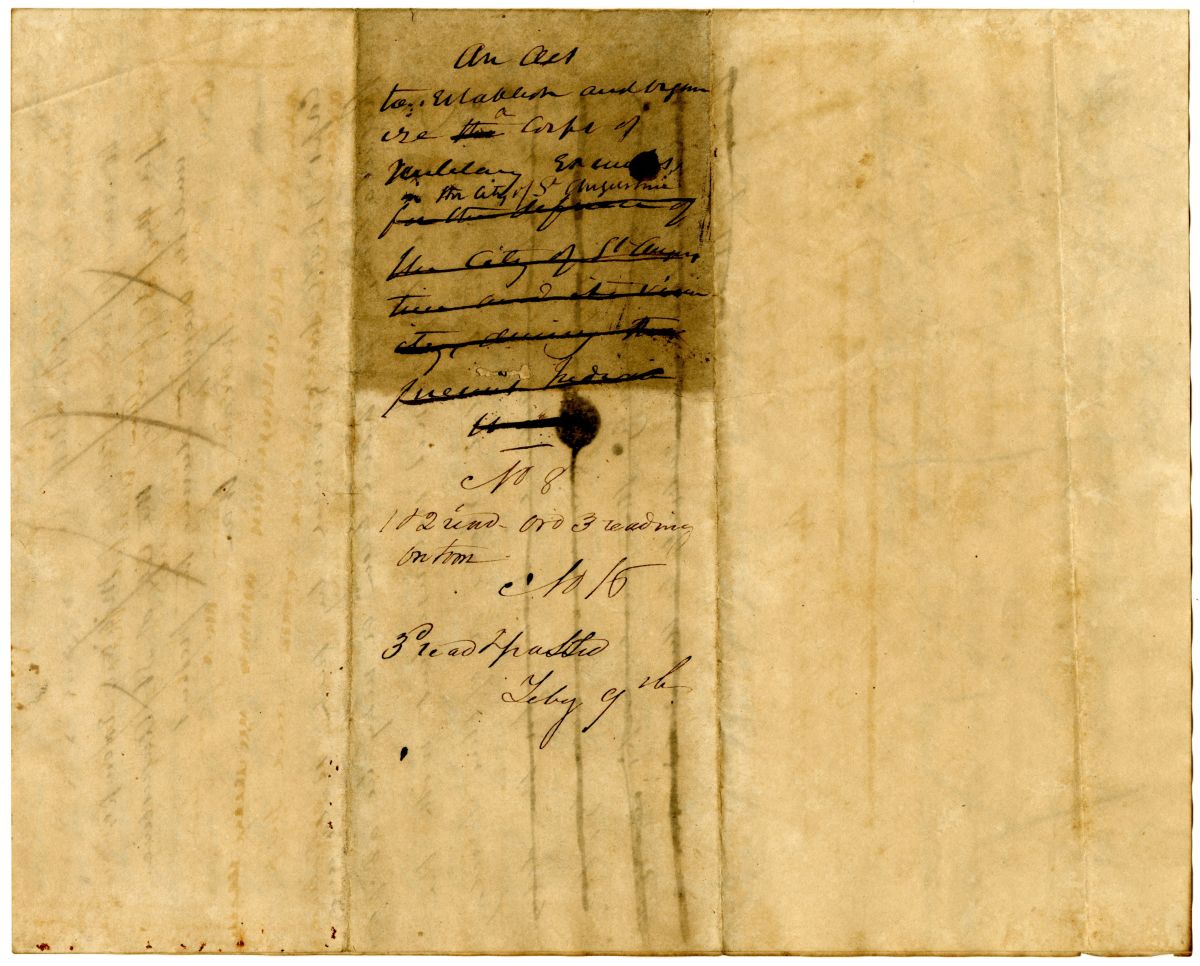 An Act
to Establish and Organ
ize the a Corps of
Military
in the City of St Augustine
for the defence of
the City of St Augus
tine and its vicin
ity, during the
present Indian
No 8
1 & 2 read - ord 3 reading
on tom
No 16
3d read & passed
Feby 9th